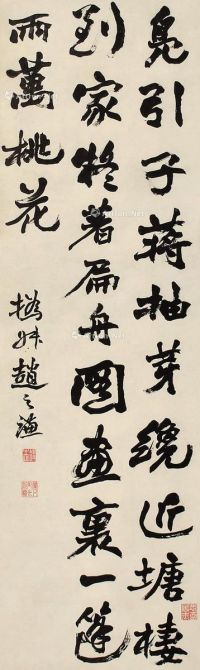 鳧引子蔣抽芽纔近塘棲
到家擬著扁舟圖畫裏一篷
雨萬桃花
撝叔趙之謙